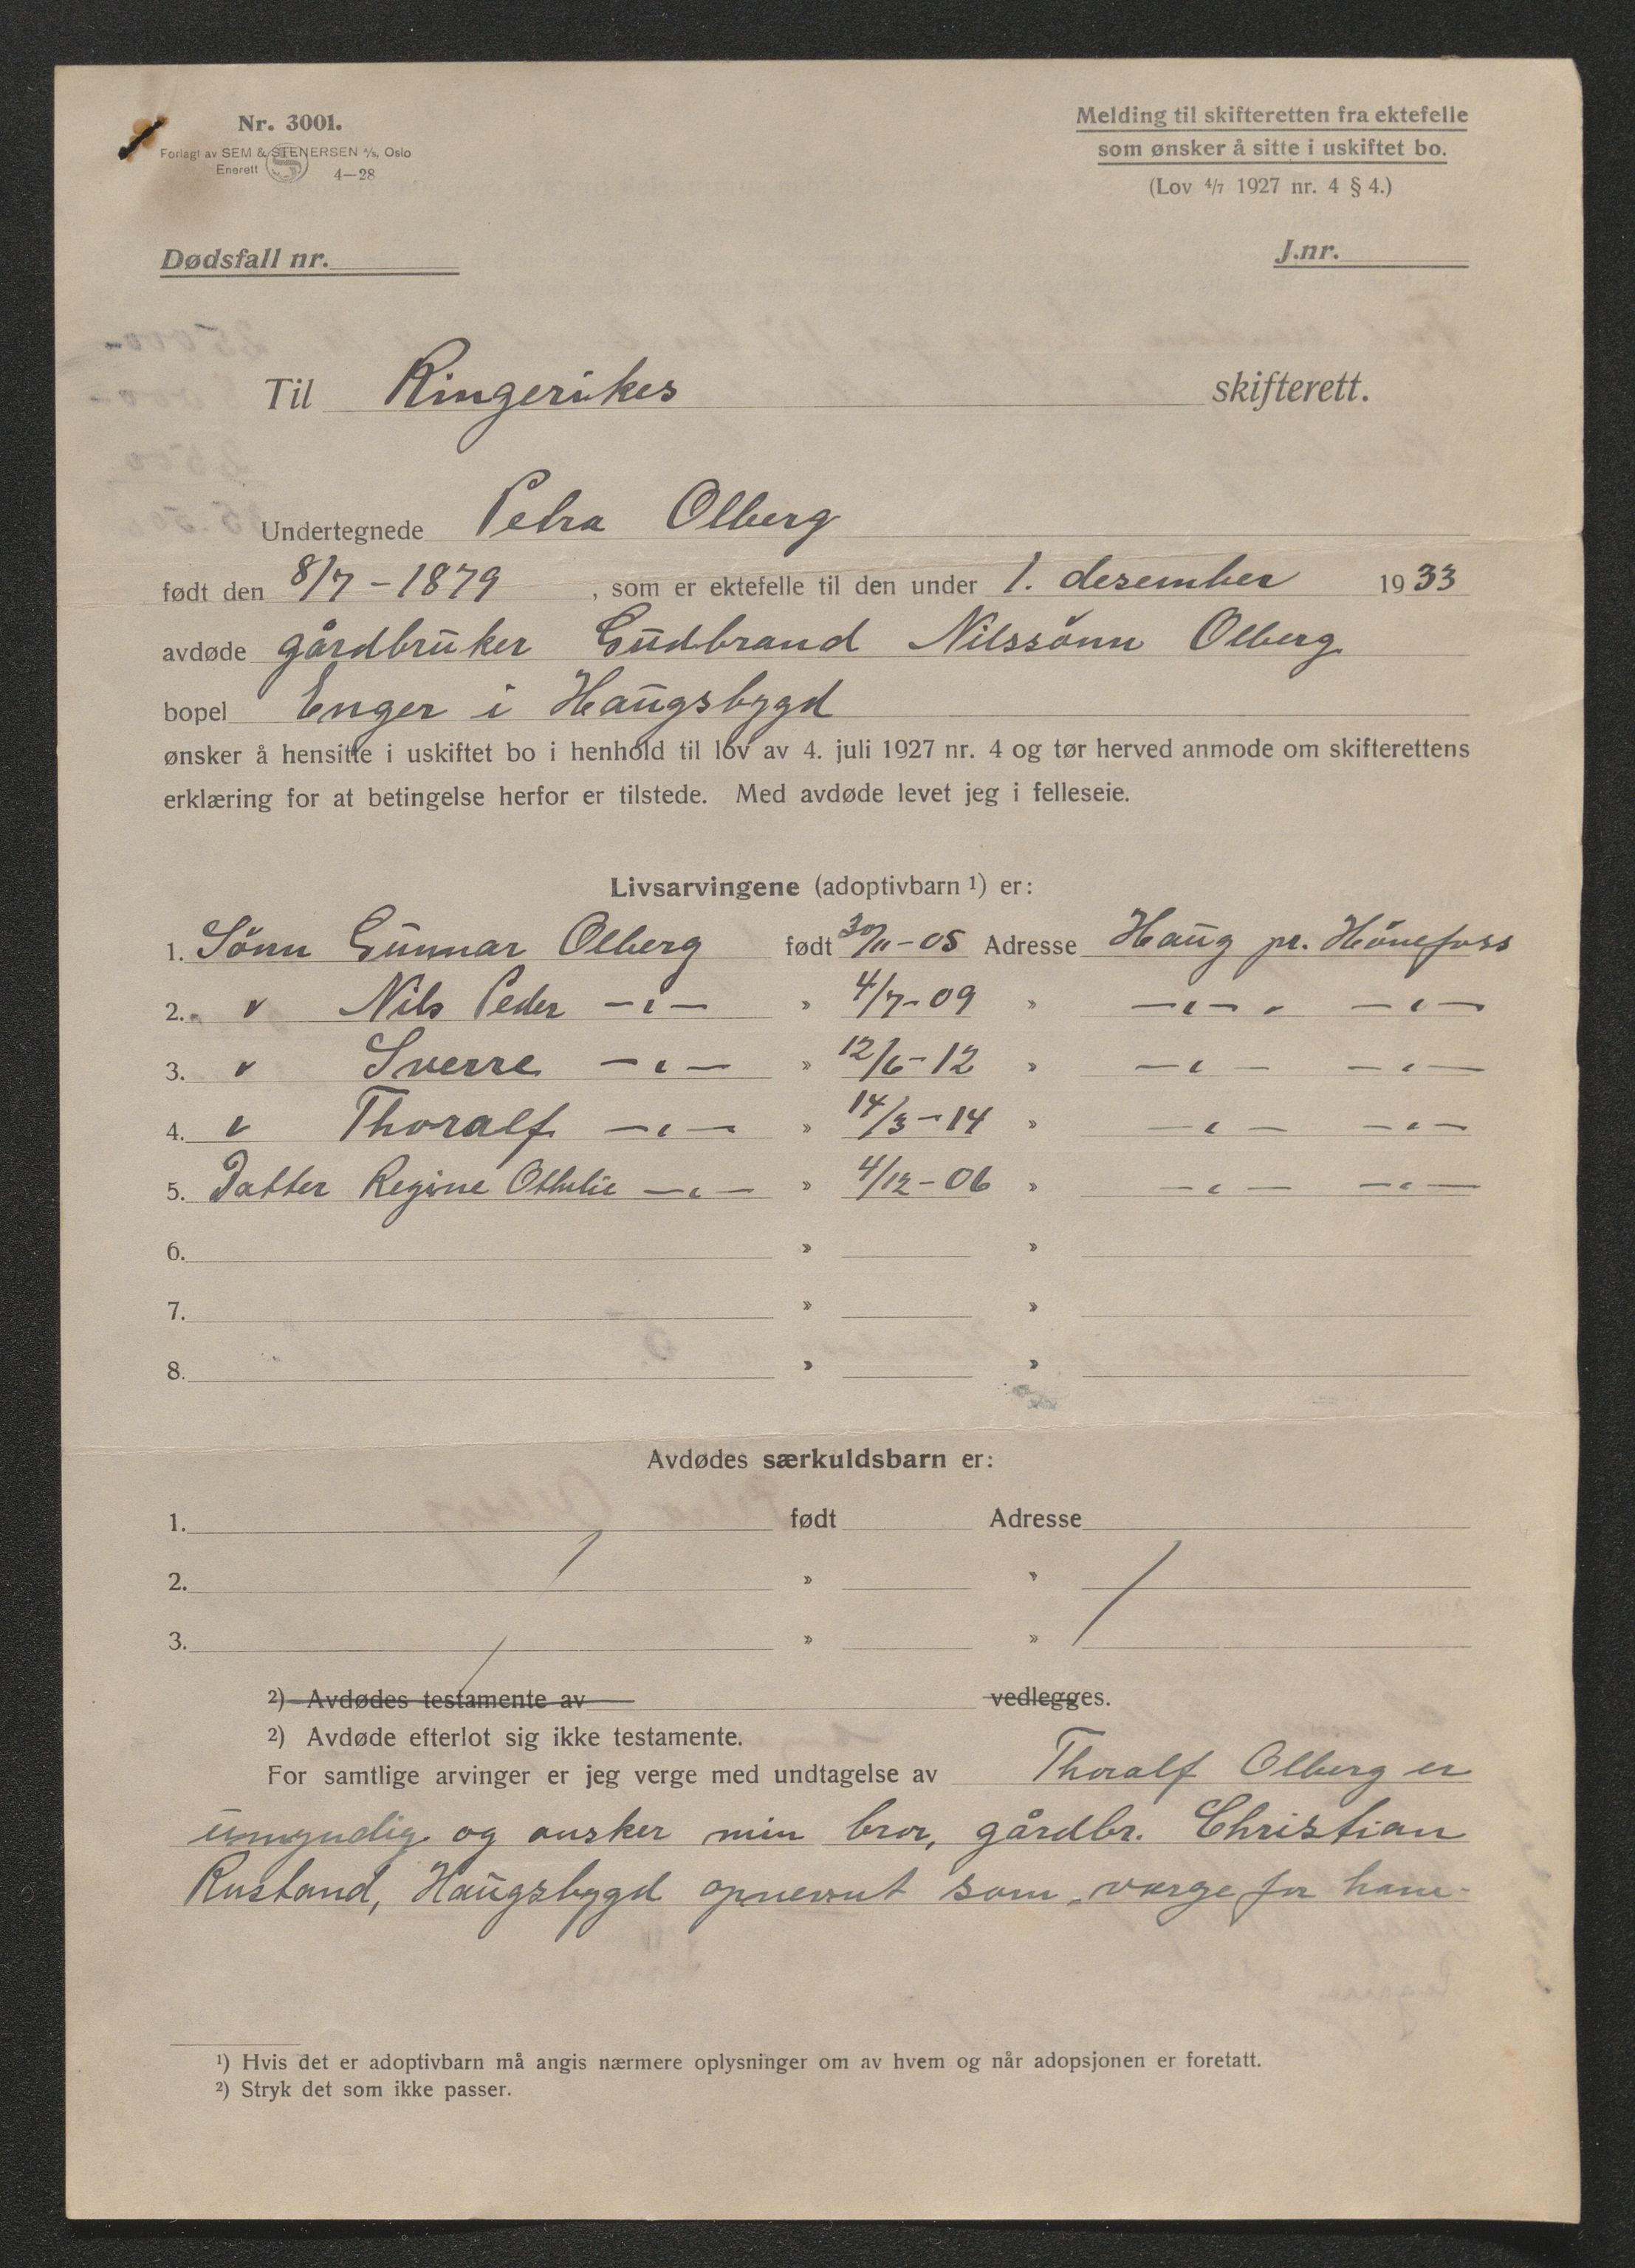 Nr. 3001.
Forlagt av SEM & STENERSEN A/S, Oslo
Enerett 4—28
Melding til skifteretten fra ektefelle
som ønsker å sitte i uskiftet bo.
(Lov 4/7 1927 nr. 4 § 4.)
Dødsfall nr.
J.nr.
Til Ringerikes skifterett.
Undertegnede Petra Olberg
født den 8/7 - 1879, som er ektefelle til den under 1. desember 1933
avdøde gårdbruker Gudbrand Nilssønn Olberg
bopel Enger i Haugsbygd
ønsker å hensitte i uskiftet bo i henhold til lov av 4. juli 1927 nr. 4 og tør herved anmode om skifterettens
erklæring for at betingelse herfor er tilstede. Med avdøde levet jeg i felleseie.
Livsarvingene (adoptivbarn 1) er:
1. Sønn Gunnar Olberg født 30/11-05 Adresse Haug pr. Hönefoss
2. " Nils Peder —"— » 4/7-09 » —"— —"—
3. " Sverre —"— » 12/6-12 » —"— —"—
4. " Thoralf —"— » 14/3-14 » —"— —"—
5. Datter Regine Othilie —"— » 4/12-06 » —"— —"—
6. » »
7. » »
8. » »
Avdødes særkuldsbarn er:
1. født Adresse
2. » »
3. » »
2) Avdødes testamente av vedlegges.
2) Avdøde efterlot sig ikke testamente.
For samtlige arvinger er jeg verge med undtagelse av Thoralf Olberg er
umyndig og ønsker min bror, gårdbr. Christian
Rustand, Haugsbygd opnevnt som verge for ham.
1) Hvis det er adoptivbarn må angis nærmere oplysninger om av hvem og når adopsjonen er foretatt.
2) Stryk det som ikke passer.